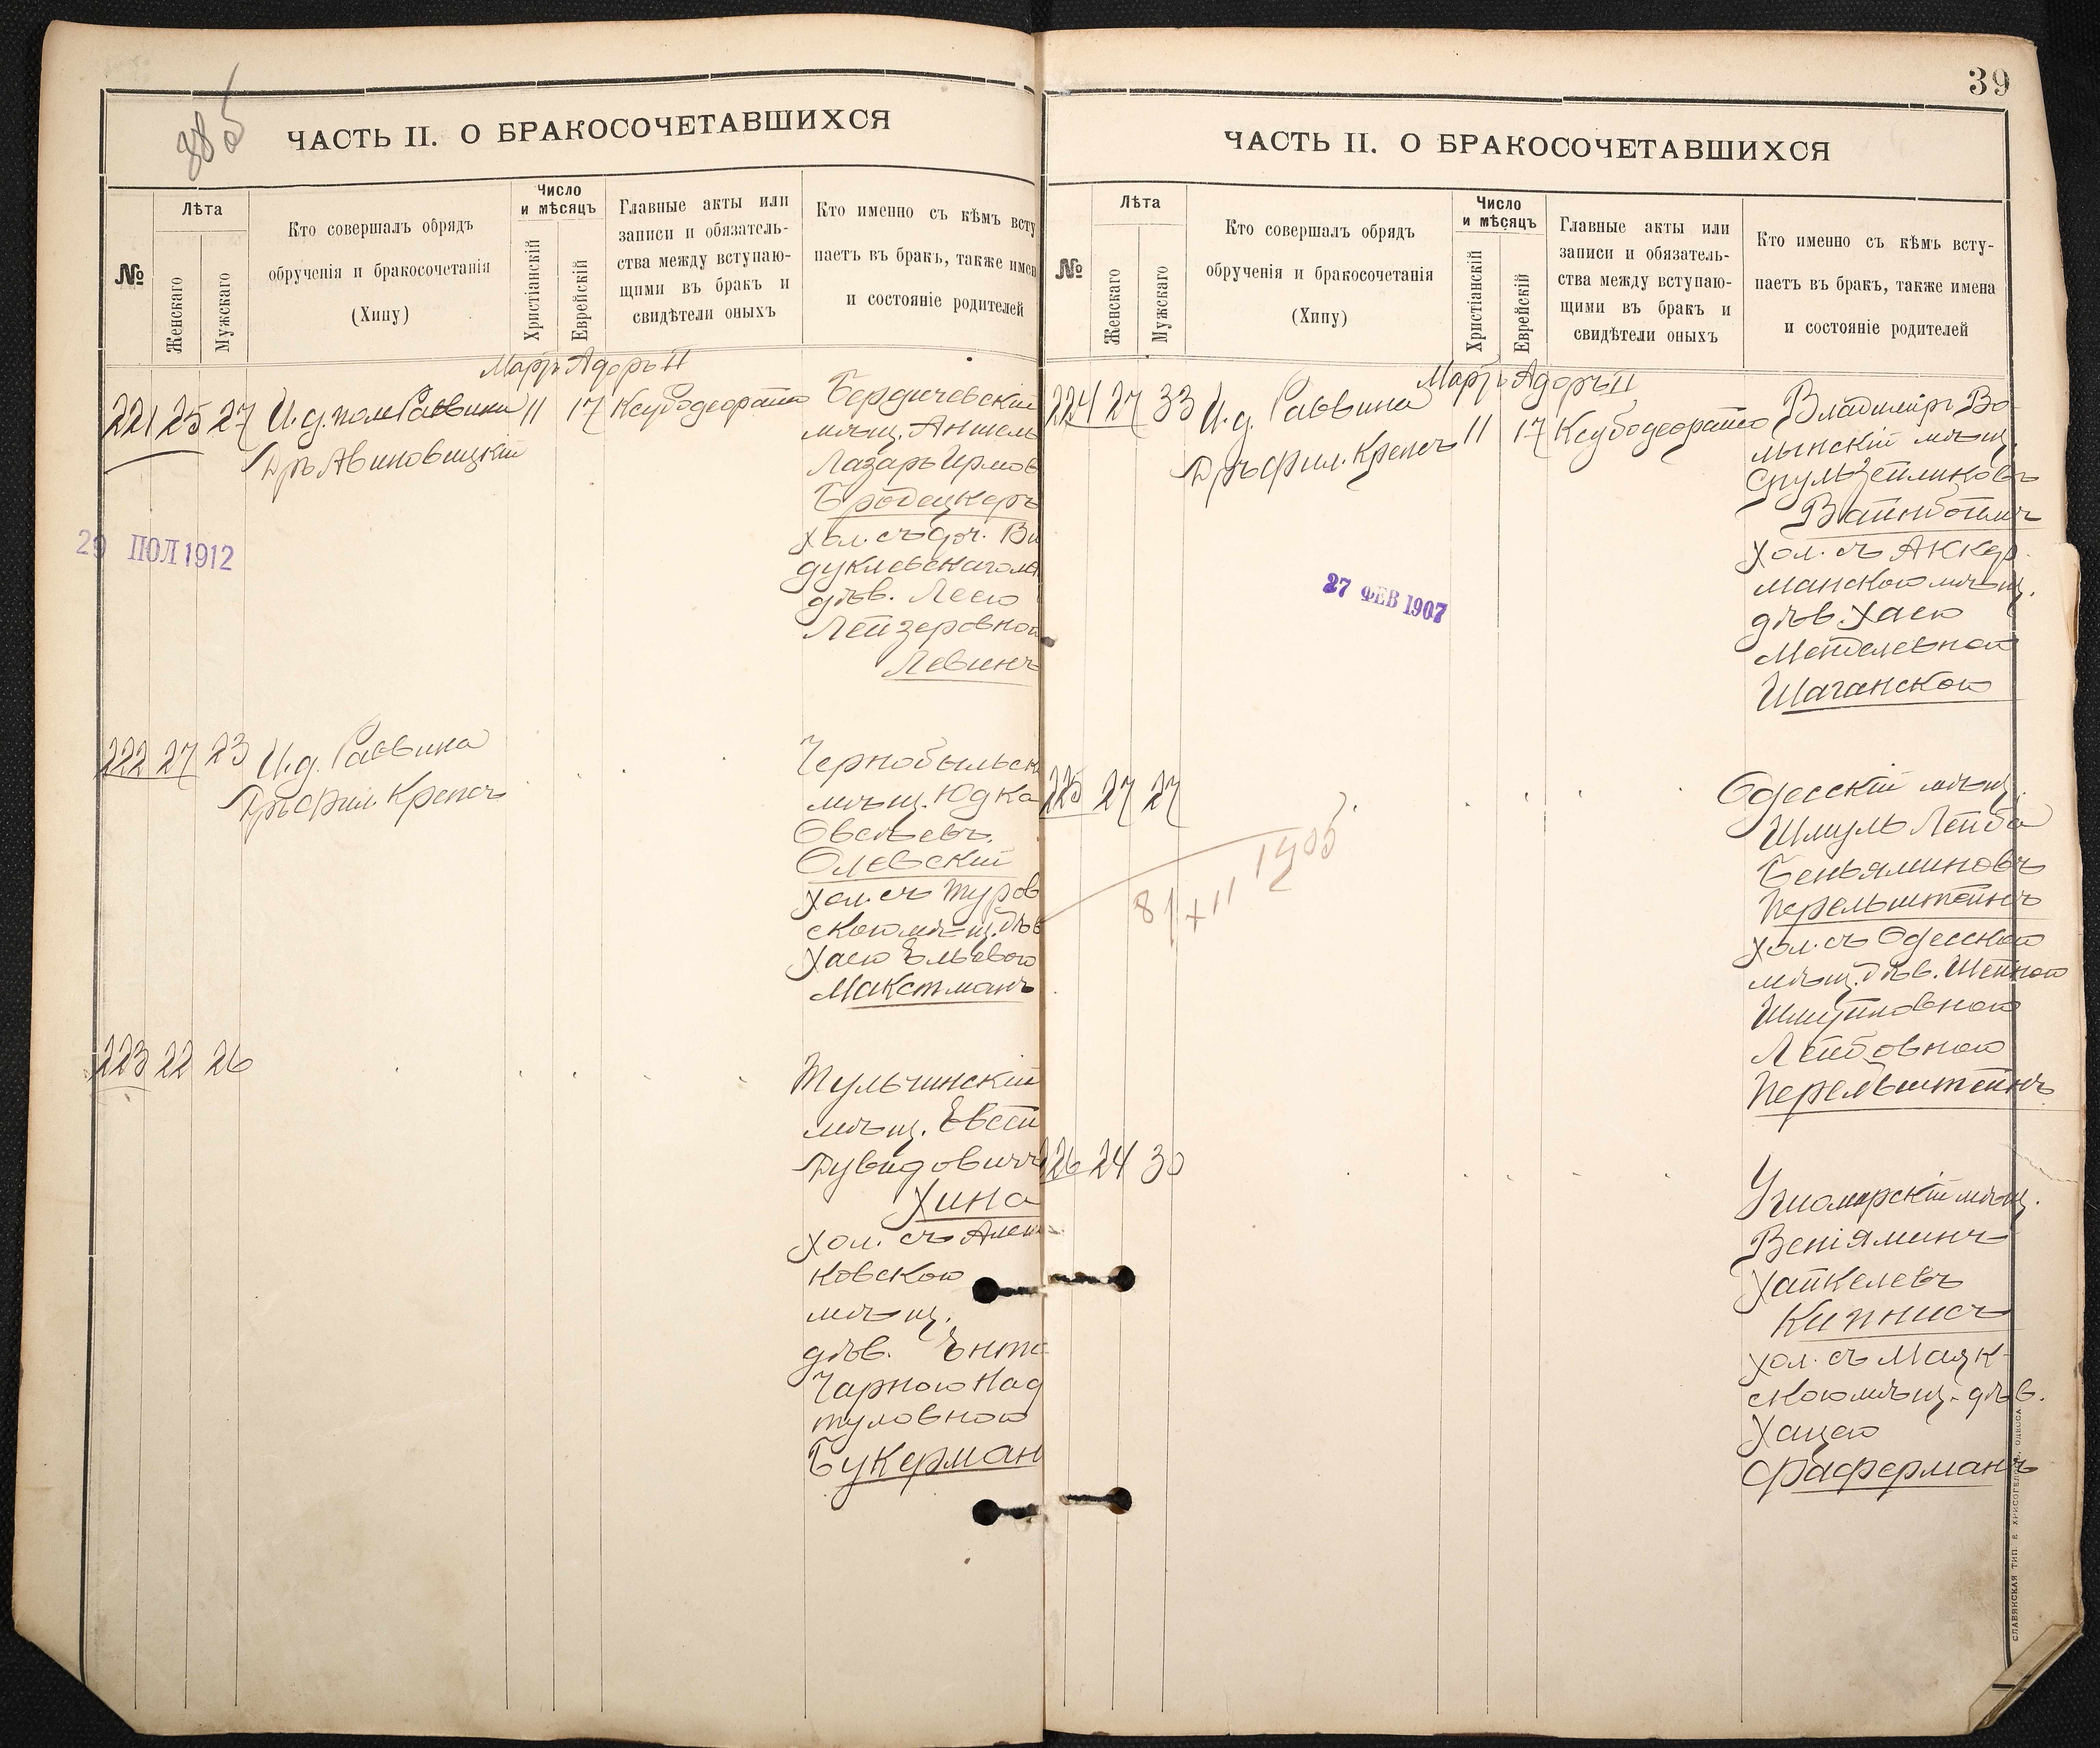 ЧАСТЬ II. О БРАКОСОЧЕТАВШИХСЯ
№
Лѣта
Женскаго
Мужскаго
Кто совершалъ обрядъ
обрученія и бракосочетанія
(Хипу)
Число
и мѣсяцъ
Христіанскій
Еврейскій
Главные акты или
записи и обязатель-
ства между вступаю-
щими въ бракъ и
свидѣтели оныхъ
Кто именно съ кѣмъ всту
паетъ въ бракъ, также имен
и состояніе родителей
Мартъ Адоръ II
221 25 27 И.д. пом. Раввина 11 17 Ксубодеорайто
Д-ръ Авиновицкій
Бердичевскій
мѣщ. Аншель
Лазарь Ирмов
Бродецкеръ
хол. съ доч. Ви
дуклевскаго мѣ
дѣв. Леею
Лейзеровной
Левинъ
29 ІЮЛ 1912
222 27 23 И.д. Раввина
Д-ръ Фил. Крепсъ
Чернобыльск
мѣщ. Юдка
Овсѣевъ
Олевскій
хол. съ Туров
скою мѣщ. дѣв
Хаею Эльевою
Макстманъ
223 22 26
Тульчинскій
мѣщ. Евсей
Дувидовичъ
Хина
хол. съ Алеш
ковскою
мѣщ.
дѣв. Энто
Чарною Наф
туловною
Букерман
39
ЧАСТЬ II. О БРАКОСОЧЕТАВШИХСЯ
№
Лѣта
Женскаго
Мужскаго
Кто совершалъ обрядъ
обрученія и бракосочетанія
(Хипу)
Число
и мѣсяцъ
Христіанскій
Еврейскій
Главные акты или
записи и обязатель-
ства между вступаю-
щими въ бракъ и
свидѣтели оныхъ
Кто именно съ кѣмъ всту-
паетъ въ бракъ, также имена
и состояніе родителей
Мартъ Адоръ II
224 27 33 И.д. Раввина 11 17 Ксубодеорайто
Д-ръ Фил. Крепсъ
Владимiръ Во
лынскій мѣщ.
Сруль Зейликовъ
Вайнбоймъ
хол. съ Аккер
манскою мѣщ.
дѣв. Хаею
Менделевной
Шаганскою
27 ФЕВ 1907
225 27 27
Одесскій мѣщ.
Шмуль Лейба
Беньяминовъ
Перельштейнъ
хол. съ Одесскою
мѣщ. дѣв. Шейною
Шмуйловною
Лейбовною
Перельштейнъ
8/XII 1905
226 24 30
Ушомирскій мѣщ.
Веніяминъ
Хайкелевъ
Кипнисъ
хол. съ Маяк-
скою мѣщ. дѣв.
Фаферманъ
СЛАВЯНСКАЯ ТИП. Е. ХРИСОГЕЛОСЪ, ОДЕССА